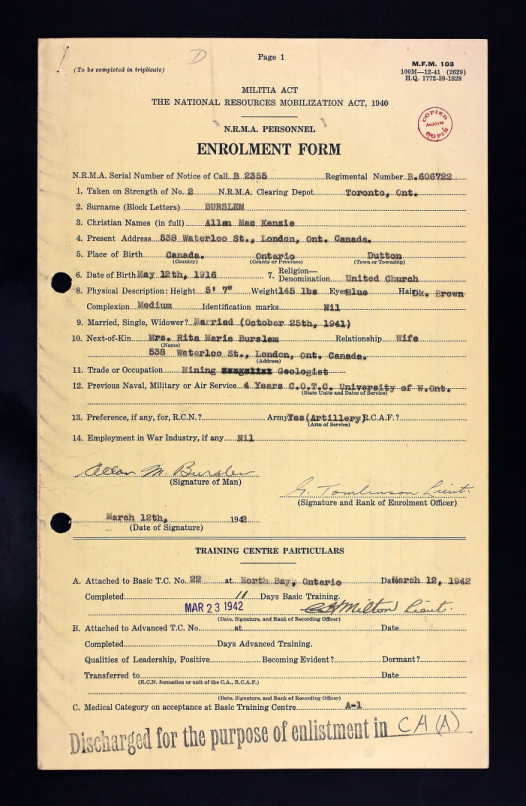 D
Page 1
(To be completed in triplicate)
M.F.M. 103
100M—12-41 (2629)
H.Q. 1772-39-1828
MILITIA ACT
THE NATIONAL RESOURCES MOBILIZATION ACT, 1940
COPIED
N.R.M.A. PERSONNEL
ENROLMENT FORM
N.R.M.A. Serial Number of Notice of Call B 2355 Regimental Number B.606722
1. Taken on Strength of No. 2 N.R.M.A. Clearing Depot Toronto, Ont.
2. Surname (Block Letters) BURSLEM
3. Christian Names (in full) Allan Mac Kenzie
4. Present Address 538 Waterloo St., London, Ont. Canada.
5. Place of Birth Canada. Ontario Dutton
(Country) (County or Province) (Town or Township)
6. Date of Birth May 12th, 1916 7. Religion—Denomination United Church
8. Physical Description: Height 5' 7" Weight 145 lbs Eyes Blue Hair Dk. Brown
Complexion Medium Identification marks Nil
9. Married, Single, Widower? Married (October 25th, 1941)
10. Next-of-Kin Mrs. Rita Marie Burslem Relationship Wife
(Name)
538 Waterloo St., London, Ont. Canada.
(Address)
11. Trade or Occupation Mining Geologist
12. Previous Naval, Military or Air Service 4 Years C.O.T.C. University of W.Ont.
(State Units and Dates of Service)
13. Preference, if any, for R.C.N.? Army Yes(Artillery) R.C.A.F.?
(Arm of Service)
14. Employment in War Industry, if any Nil
Allan M. Burslem
(Signature of Man)
G. Tomlinson Lieut.
(Signature and Rank of Enrolment Officer)
March 12th, 1942
(Date of Signature)
TRAINING CENTRE PARTICULARS
A. Attached to Basic T.C. No. 22 at North Bay, Ontario Date March 12, 1942
Completed 11 Days Basic Training.
MAR 23 1942 Milton Lieut.
(Date, Signature, and Rank of Recording Officer)
B. Attached to Advanced T.C. No. at Date
Completed Days Advanced Training.
Qualities of Leadership, Positive Becoming Evident? Dormant?
Transferred to Date
(R.C.N. formation or unit of the C.A., R.C.A.F.)
(Date, Signature, and Rank of Recording Officer)
C. Medical Category on acceptance at Basic Training Centre A-1
Discharged for the purpose of enlistment in CA(A)